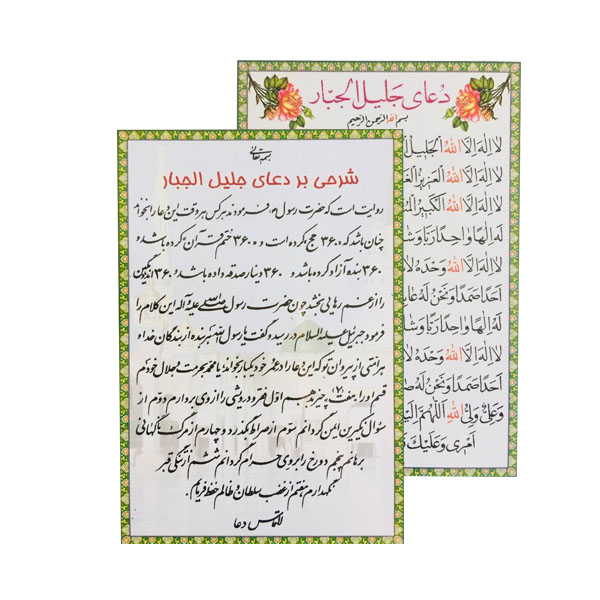 بسمه تعالی
شرحی بر دعای جلیل الجبار
روایت است که حضرت رسول ص فرمودند هر کس هر وقت این دعا را بخواند
چنان باشد که ۳۶۰ حج کرده است و ۳۶۰۰ ختم قرآن کرده باشد و
۳۶۰ بنده آزاد کرده باشد و ۳۶۰ دینار صدقه داده باشد و ۳۶۰ اندوهگین
را از غم رهایی بخشد چون حضرت رسول صلی الله علیه و آله این کلام را
فرمود جبرئیل علیه السلام در رسید و گفت یا رسول الله هر بنده از بندگان خدا و
هر امتی از پیروان تو که این دعا را در عمر خود یکبار بخواند یا محمد بحرمت و جلال خودم
قسم او را هفت (۷) چیز بدهم اول فقر و درویشی را از وی بردارم دوم از
سؤال نکیرین ایمن گردانم سوم از صراط بگذرد و چهارم از مرگ ناگهانی
برهانم پنجم دوزخ را بر وی حرام گردانم ششم از تنگی قبر
نگهدارم هفتم از غضب سلطان و ظالم حفظ فرمایم.
التماس دعا
دعای جلیل الجبار
بسم الله الرحمن الرحیم
لا اله الا الله الجلیل
لا اله الا الله العزیز
لا اله الا الله الکبیر
له الها واحدا ربا و
لا اله الا الله وحده لا
احدا صمدا و نحن له
له الها واحدا ربا و
لا اله الا الله وحده لا
احدا صمدا و نحن له
و علی ولی الله اللهم
امری و علیک